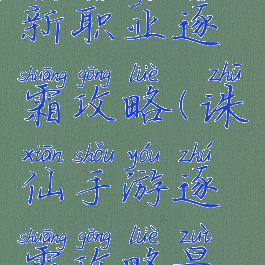 新职业逐
shuāng gōng lüè zhū
霜攻略(诛
xiān shǒu yóu zhú
仙手游逐
shuāng gōng lüè zuì
霜攻略最